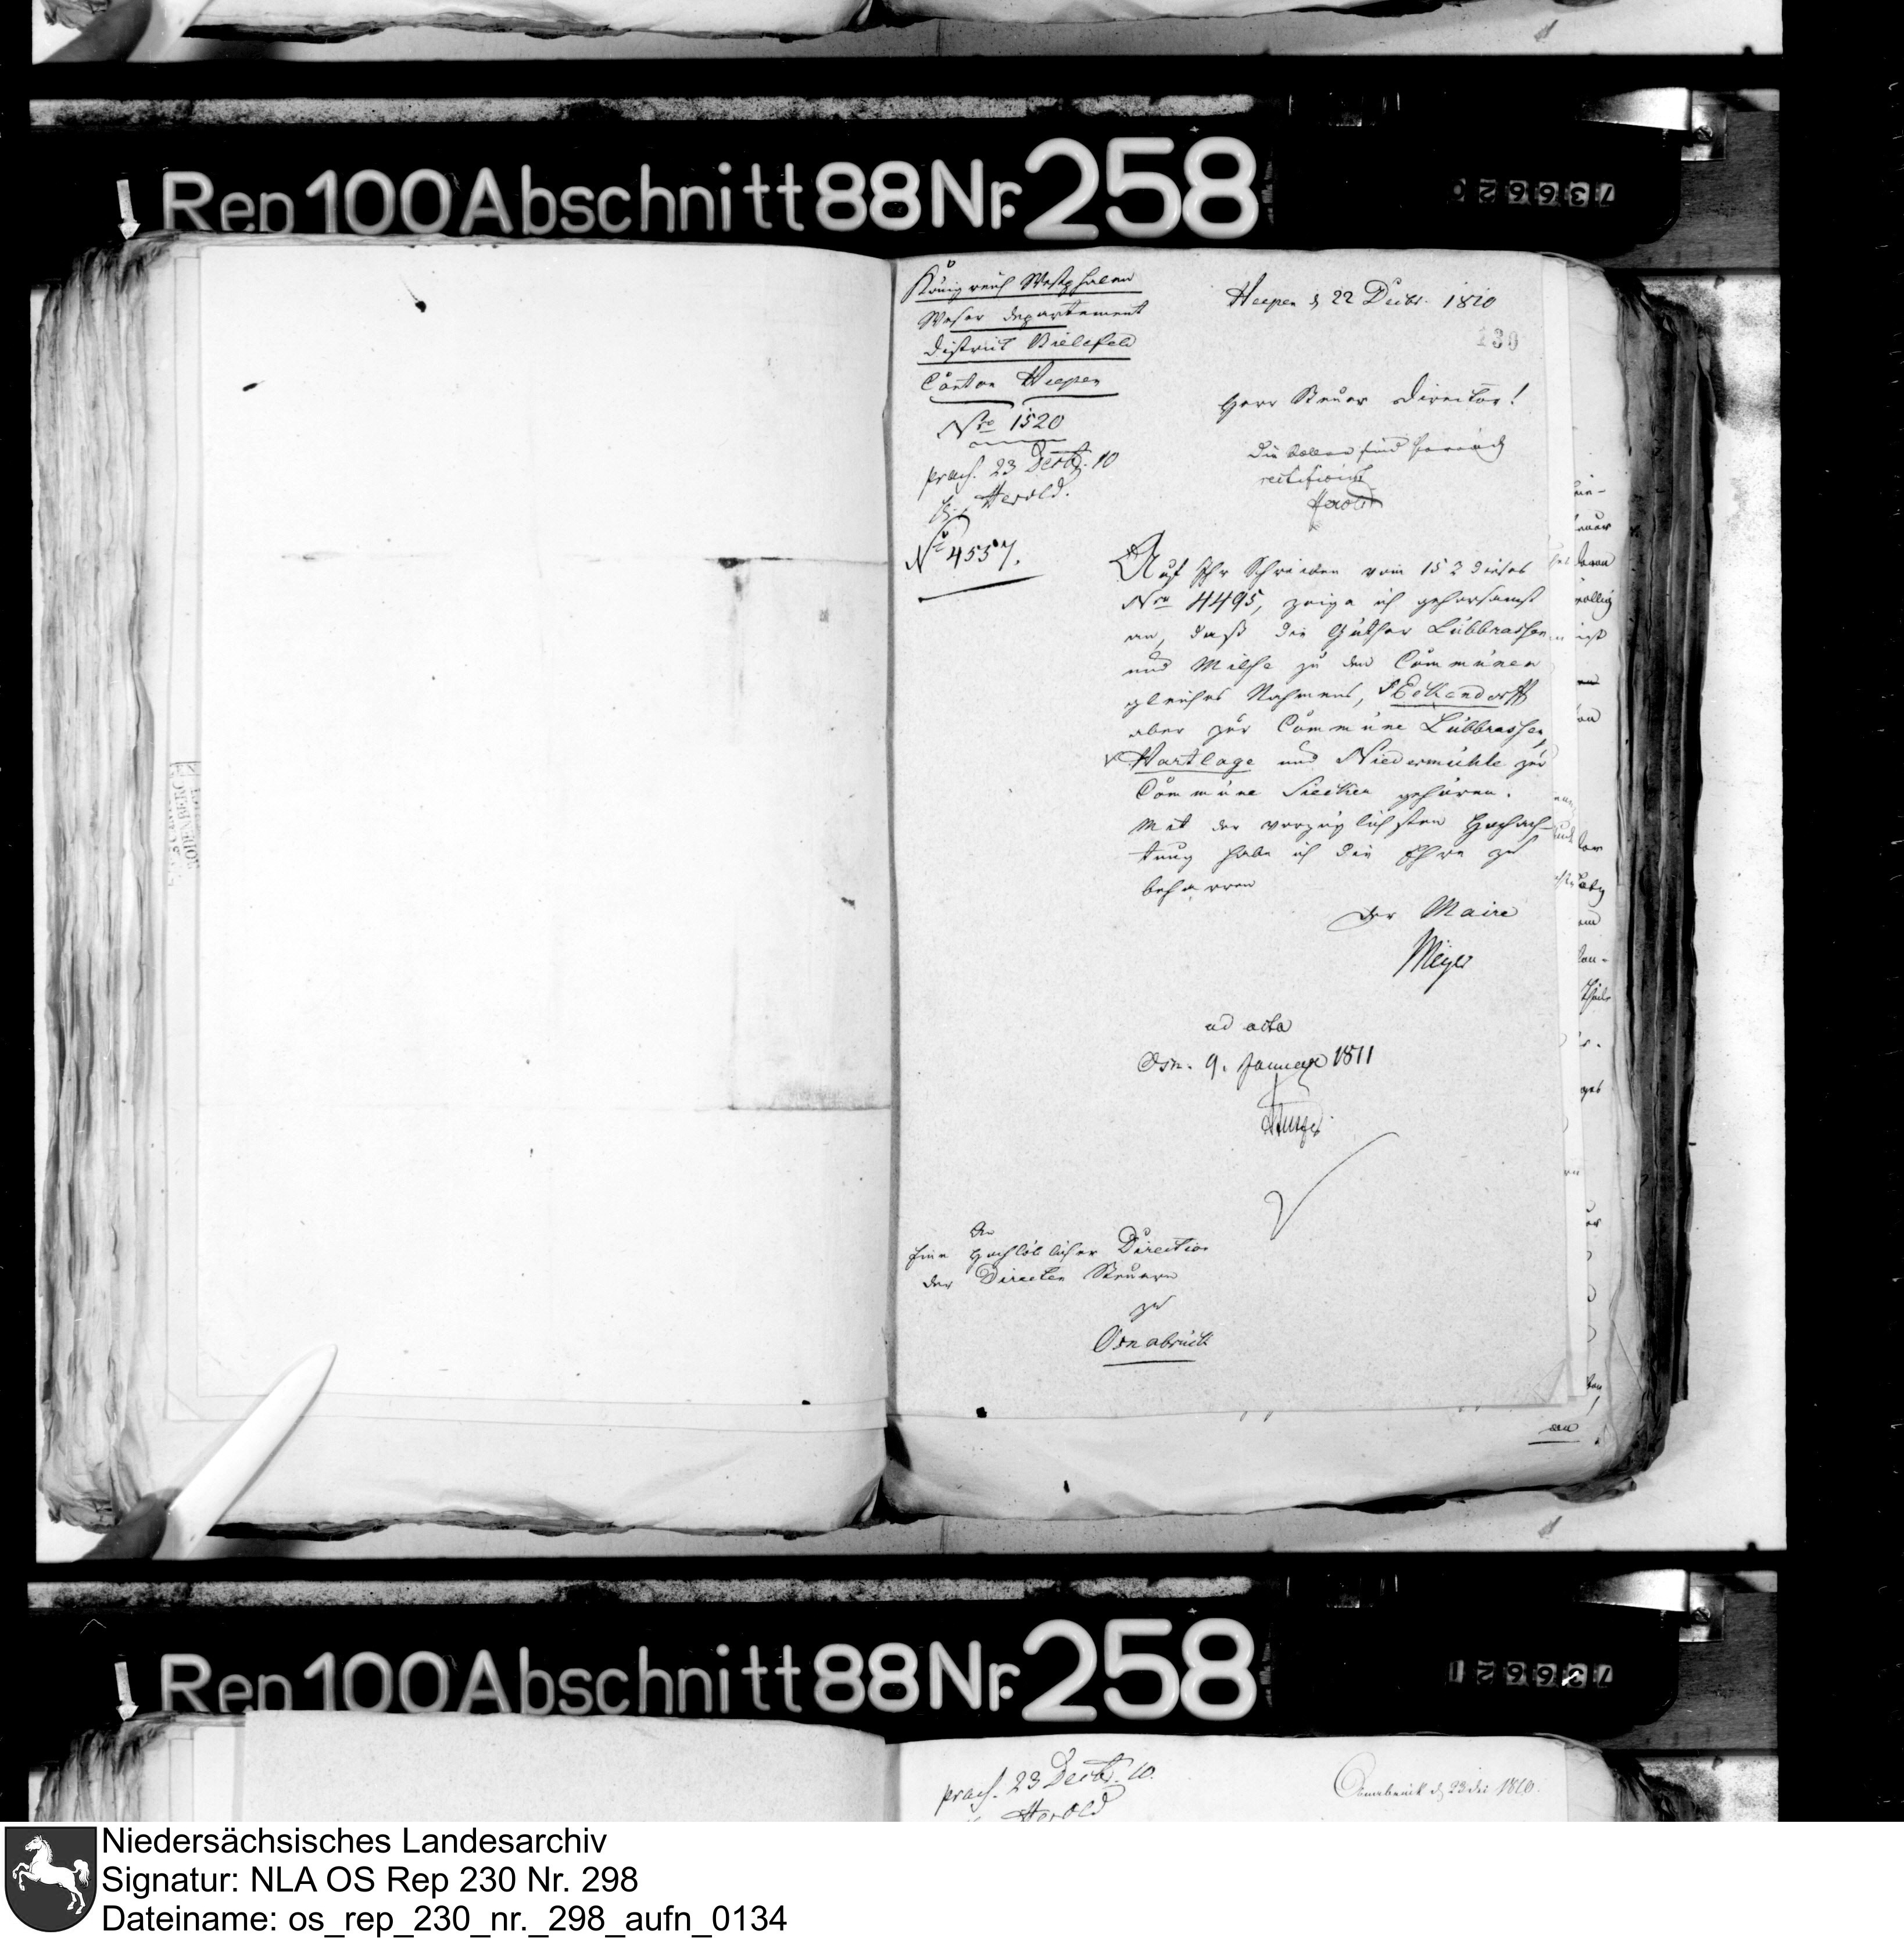 Rep 100 Abschnitt 88 Nr. 258
736620
Königreich Westphalen
Weser departement
District Bielefeld
Canton Heepen
Nro 1520
praes. 23 Decbr. 10
Herold.
No 4557.
Heepen d 22 Decbr. 1810
130
Herr Steuer Director!
die Rollen sind hernach
rectificirt
Herold
Auf Ihr Schreiben vom 15 d dieses
Nro 4495, zeige ich gehorsamst
an, daß die Güther Lübbrassen
und Milse zu den Communen
gleiches Nahmens, Eckendorff
aber zur Commune Lübbrassen,
Hartlage und Niedermühle zur
Commune Siecker gehören.
Mit der vorzüglichsten Hochach-
tung habe ich die Ehre zu
beharren
Der Maire
Meyer
ad acta
Osn. 9. Januar 1811
An
Eine Hochlöbliche Direction
der Directen Steuern
zu
Osnabrück
Rep 100 Abschnitt 88 Nr. 258
736621
praes. 23 Decbr. 10.
Herold
Osnabrück d 23 Dec 1810.
Niedersächsisches Landesarchiv
Signatur: NLA OS Rep 230 Nr. 298
Dateiname: os_rep_230_nr._298_aufn_0134